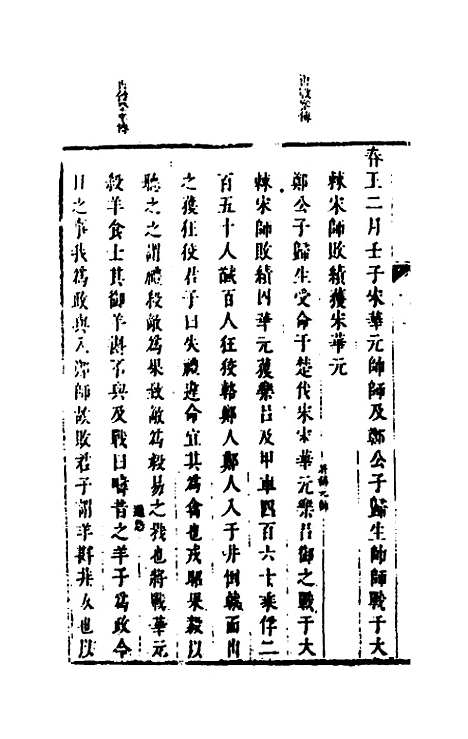 春王二月壬子宋華元帥師及鄭公子歸生帥師戰于大
棘宋師敗績獲宋華元
鄭公子歸生受命于楚伐宋宋華元樂呂御之戰于大
棘宋師敗績囚華元獲樂呂及甲車四百六十乘俘二
百五十人馘百人狂狡輅鄭人鄭人入于井倒戟而出
之獲狂狡君子曰失禮違命宜其為禽也戎昭果毅以
聽之之謂禮殺敵為果致敵為毅易之戮也將戰華元
殺羊食士其御羊斟不與及戰曰疇昔之羊子為政今
日之事我為政與入鄭師故敗君子謂羊斟非人也以